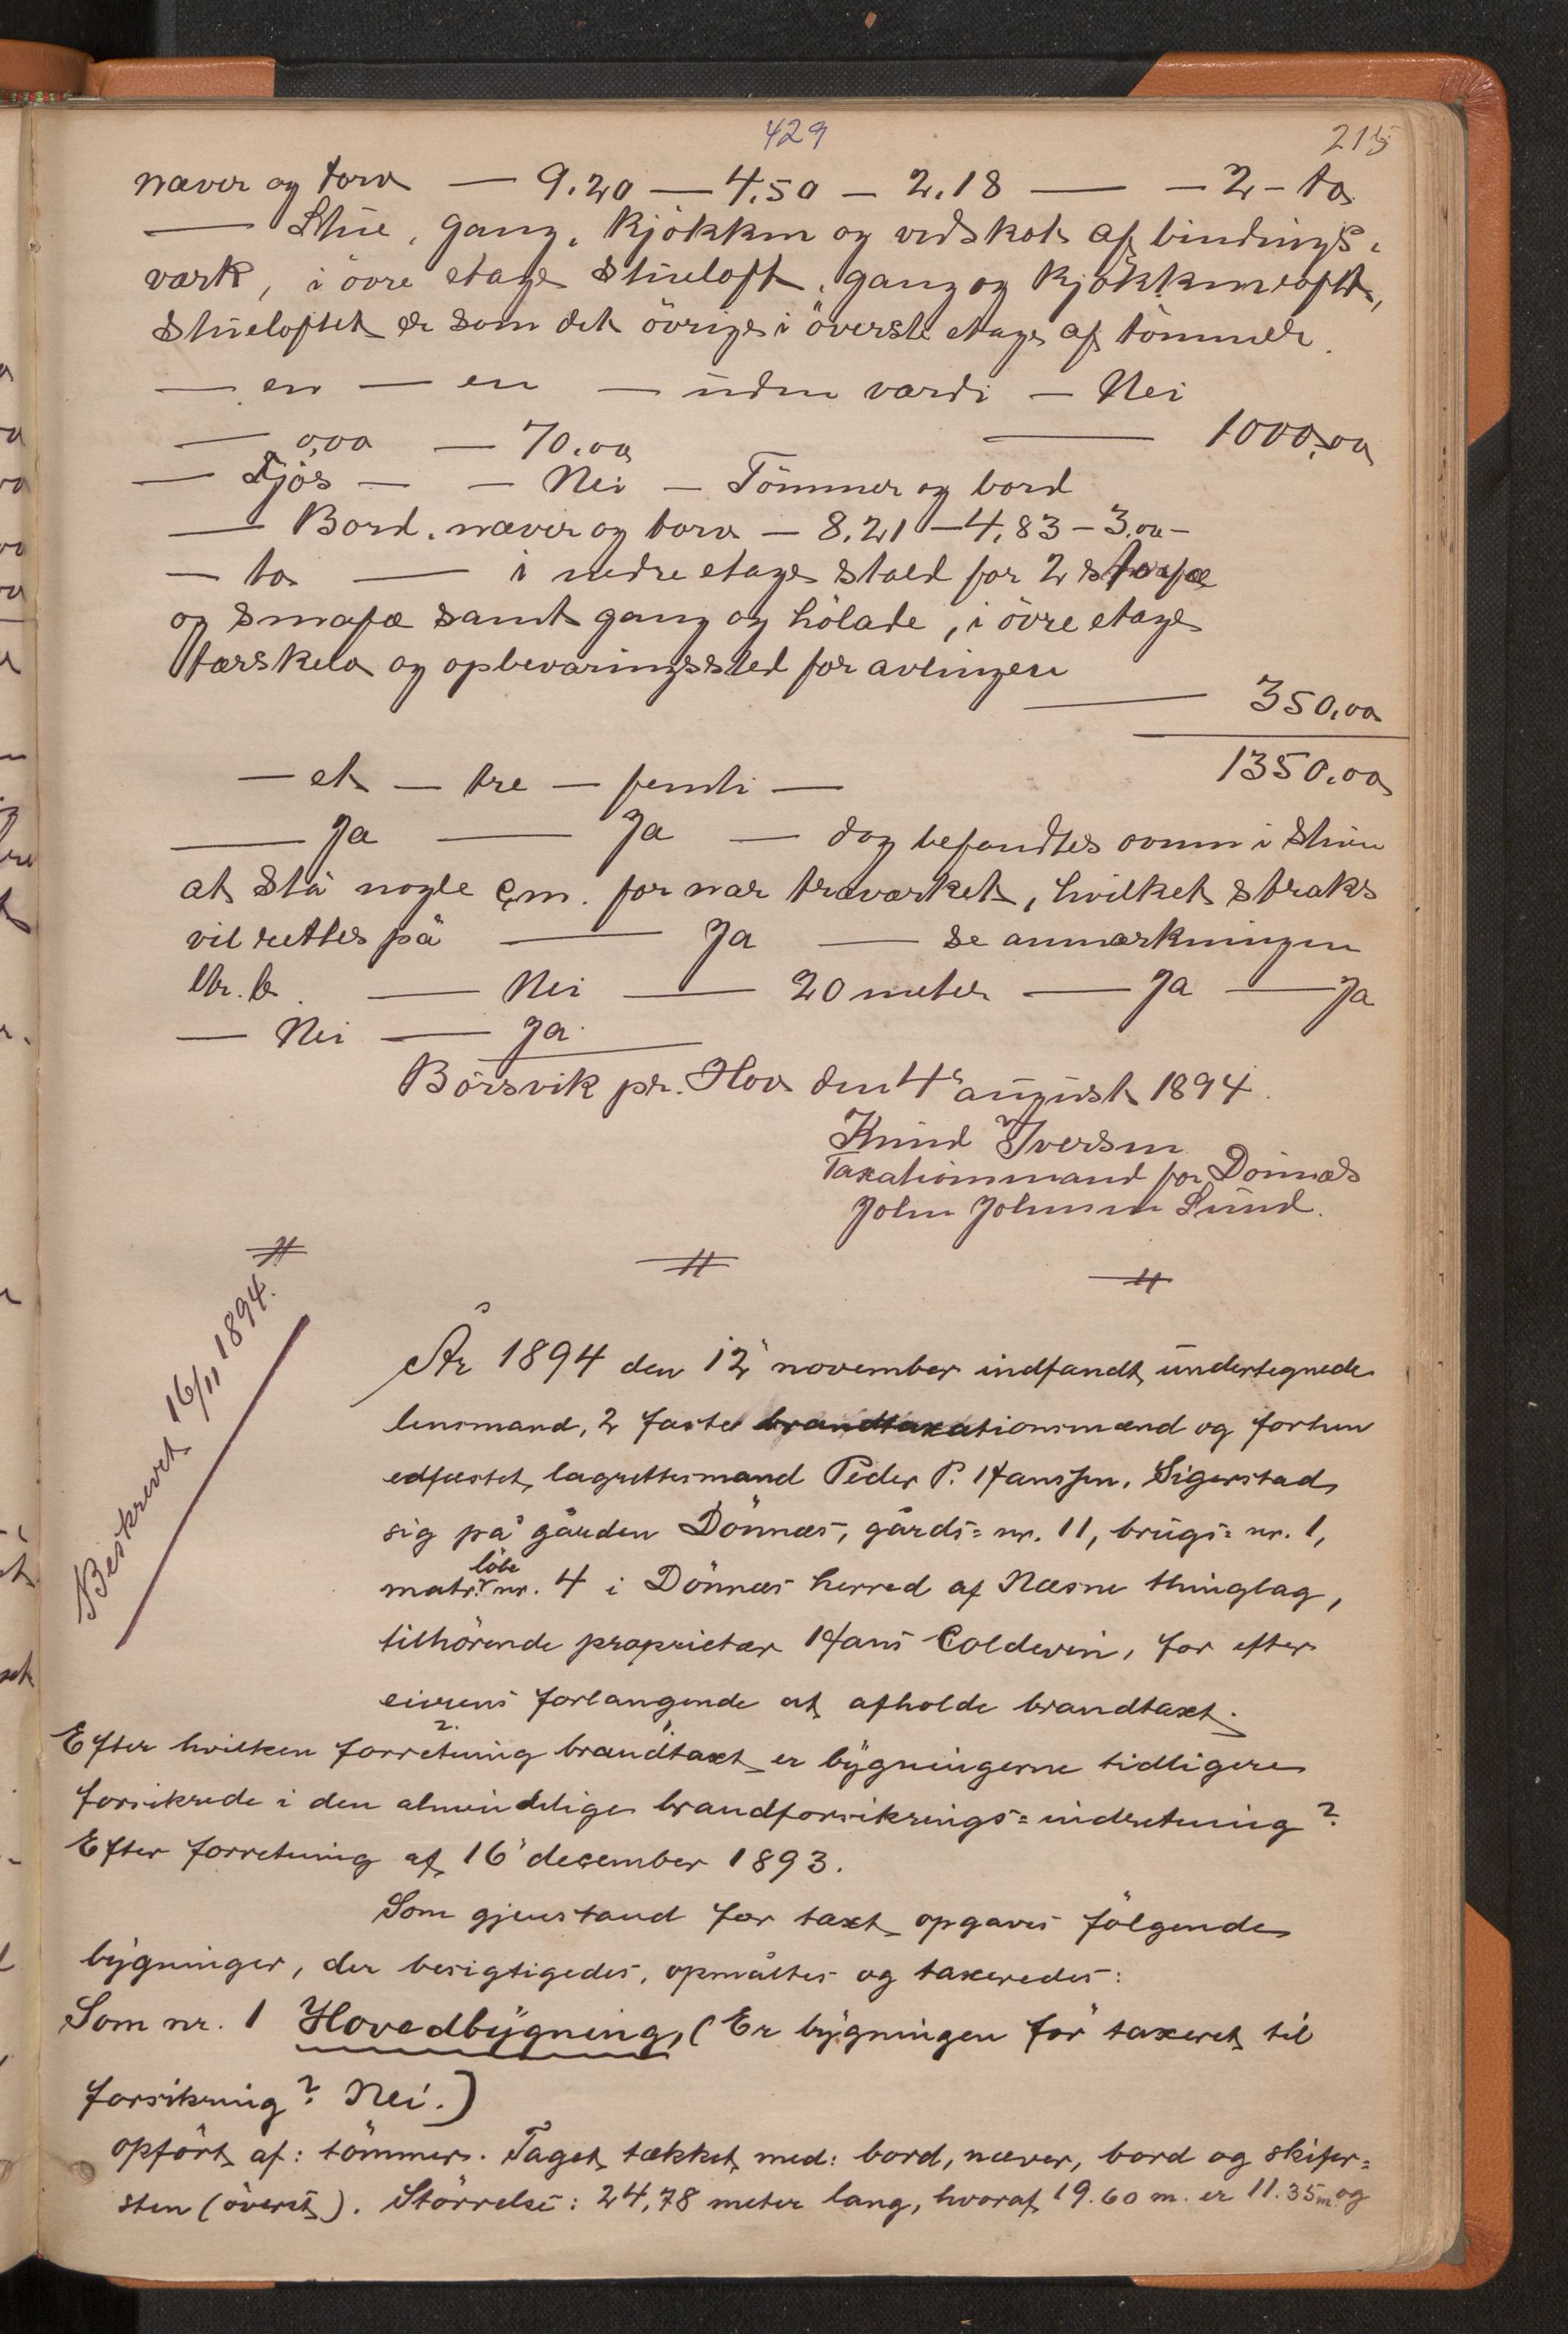 429
215
næver og torv — 9.20 — 4.50 — 2.18 — — 2 - to
— Stue, gang, kjøkken og vedskot af bindings-
værk, i övre etage stueloft, gang og kjökkenloft,
stueloftet er som det övrige i överste etage af tömmer.
— en — en — uden værdi — Nei
— 0,00 — 70.00 — 1000.00
— Fjös — — Nei — Tömmer og bord
— Bord, næver og torv — 8.21 — 4.83 — 3.00 —
— to — i nedre etage stald for 2 storfæ
og smafæ samt gang og hölade, i övre etage
tærskelo og opbevaringssted for avlingen
— 350.00
1350.00
— et — tre — femti —
— Ja — Ja — dog befandtes ovnen i stuen
at stå nogle cm. for nær træværket, hvilket straks
vil rettes på — Ja — se anmærkningen
litr. b. — Nei — 20 meter — Ja — Ja
— Nei — Ja.
Börsvik pr. Hov den 4 august 1894.
Knud Iversen
Taxationsmand for Dönnæs
John Johnsen Lund.
Beskrevet 16/11 1894.
År 1894 den 12' november indfandt undertegnede
lensmand, 2 faste brandtaxationsmænd og forhen
edfæstet lagrettesmand Peder P. Hanssen, Sigerstad,
sig på gården Dönnæs, gårds= nr. 11, brugs= nr. 1,
löbe
matr. nr. 4 i Dönnæs herred af Næsne thinglag,
tilhörende proprietær Hans Coldevin, for efter
eierens forlangende at afholde brandtaxt.
Efter hvilken forretning brandtaxt er bygningerne tidligere
forsikrede i den almindelige brandforsikrings=indretning?
Efter forretning af 16' december 1893.
Som gjenstand for taxt opgaves fölgende
bygninger, der besigtigedes, opmåltes og taxeredes:
Som nr. 1 Hovedbygning, (Er bygningen för taxeret til
forsikring? Nei.)
opfört af: tömmer. Taget tækket med: bord, næver, bord og skifer=
sten (överst). Störrelse: 24,78 meter lang, hvoraf 19.60 m. er 11.35 m. og